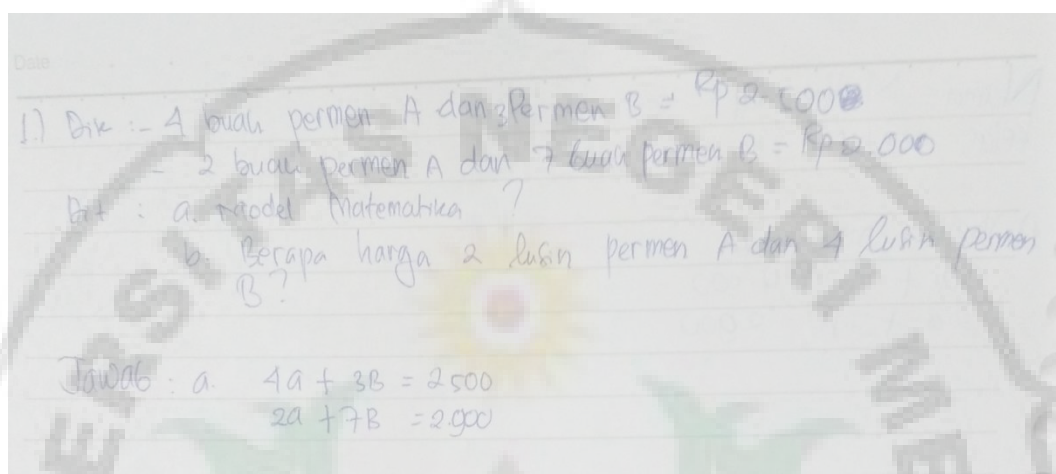 Date
1.) Dik :- 4 buah permen A dan 3 Permen B = Rp 2.500
- 2 buah permen A dan 7 buah permen B = Rp 2.000
Dit : a. Model Matematika ?
b. Berapa harga 2 lusin permen A dan 4 lusin permen
B ?
Jawab : a. 4a + 3B = 2500
2a + 7B = 2.900
ERSITAS NEGERI ME